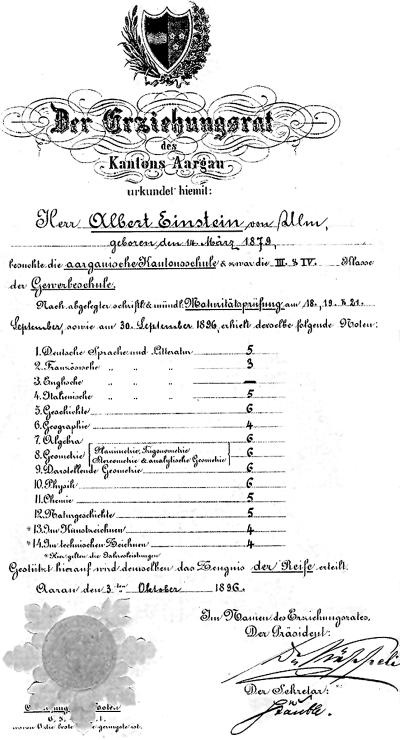 Der Erziehungsrat
des
Kantons Aargau
urkundet hiemit:
Herr Albert Einstein von Ulm,
geboren den 14. März 1879,
besuchte die aargauische Kantonsschule & zwar die III. & IV. Klasse
der Gewerbeschule.
Nach abgelegter schriftl. & mündl. Maturitätsprüfung am 18., 19. & 21.
September, sowie am 30. September 1896, erhielt derselbe folgende Noten:
1. Deutsche Sprache und Litteratur 5
2. Französische „ „ „ 3
3. Englische „ „ „ —
4. Italienische „ „ „ 5
5. Geschichte 6
6. Geographie 4
7. Algebra 6
8. Geometrie (Planimetrie, Trigonometrie 6
Stereometrie & analytische Geometrie)
9. Darstellende Geometrie 6
10. Physik 6
11. Chemie 5
12. Naturgeschichte 5
*13. Im Kunstzeichnen 4
*14. Im technischen Zeichnen 4
*Hier gelten die Jahresleistungen
Gestützt hierauf wird demselben das Zeugnis der Reife erteilt.
Aarau den 3ten Oktober 1896.
Im Namen des Erziehungsrates,
Der Präsident:
Der Sekretär: